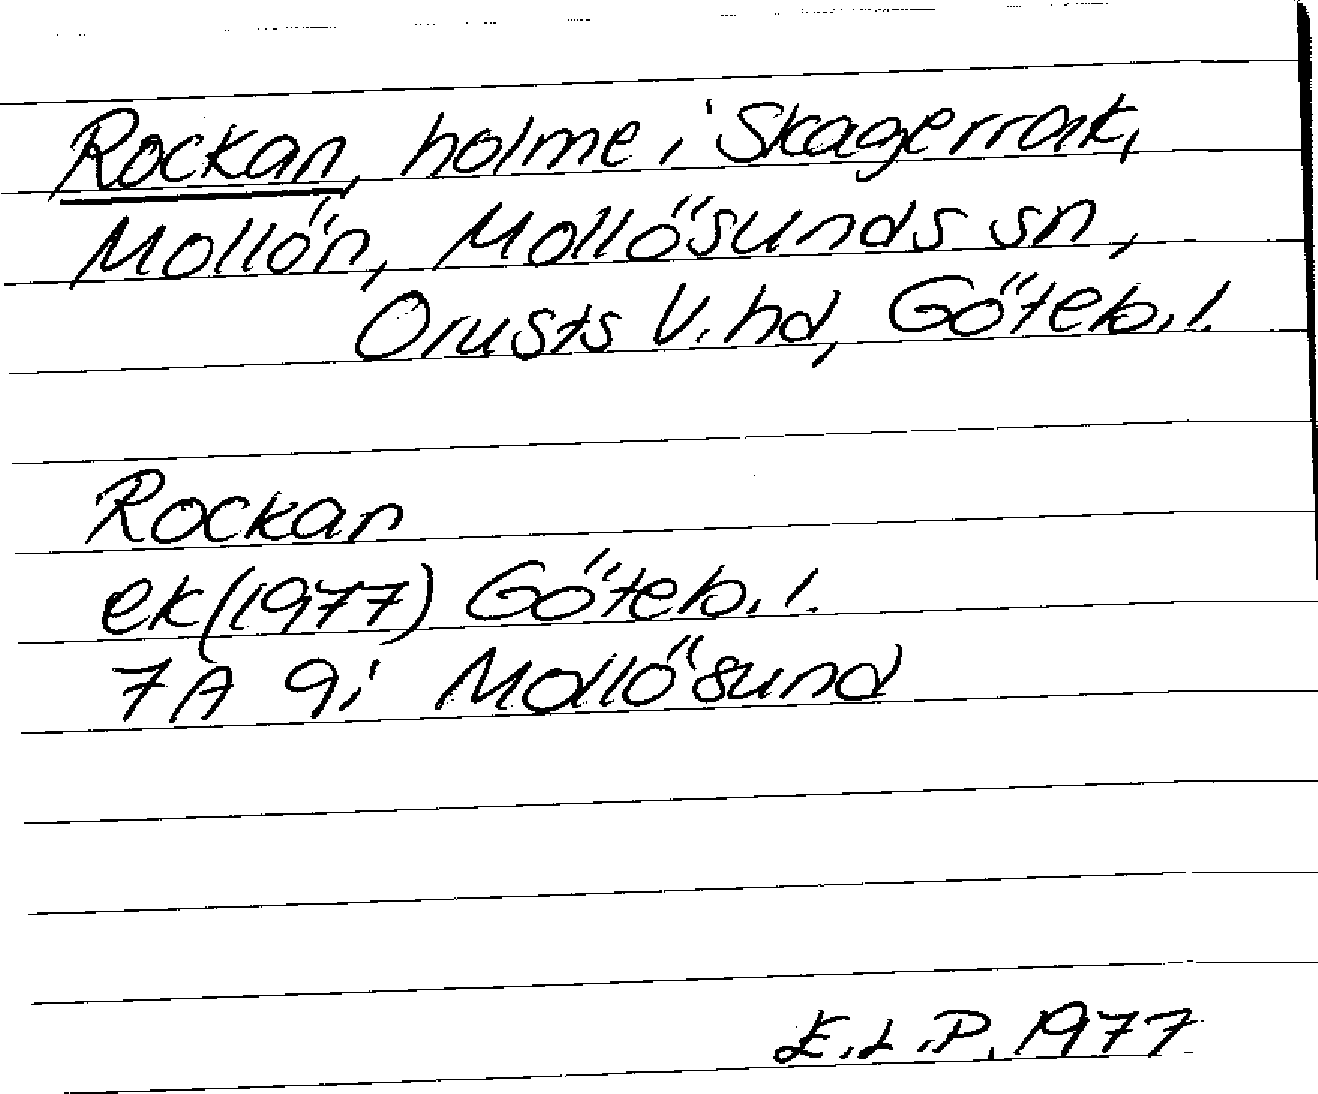 Rockan, holme i Skagerrak,
Mollön, Mollösunds sn,
Orusts V. hd, Göteb. l.
Rockan
ek (1977) Göteb. l.
7A 9i Mollösund
E.L.P. 1977